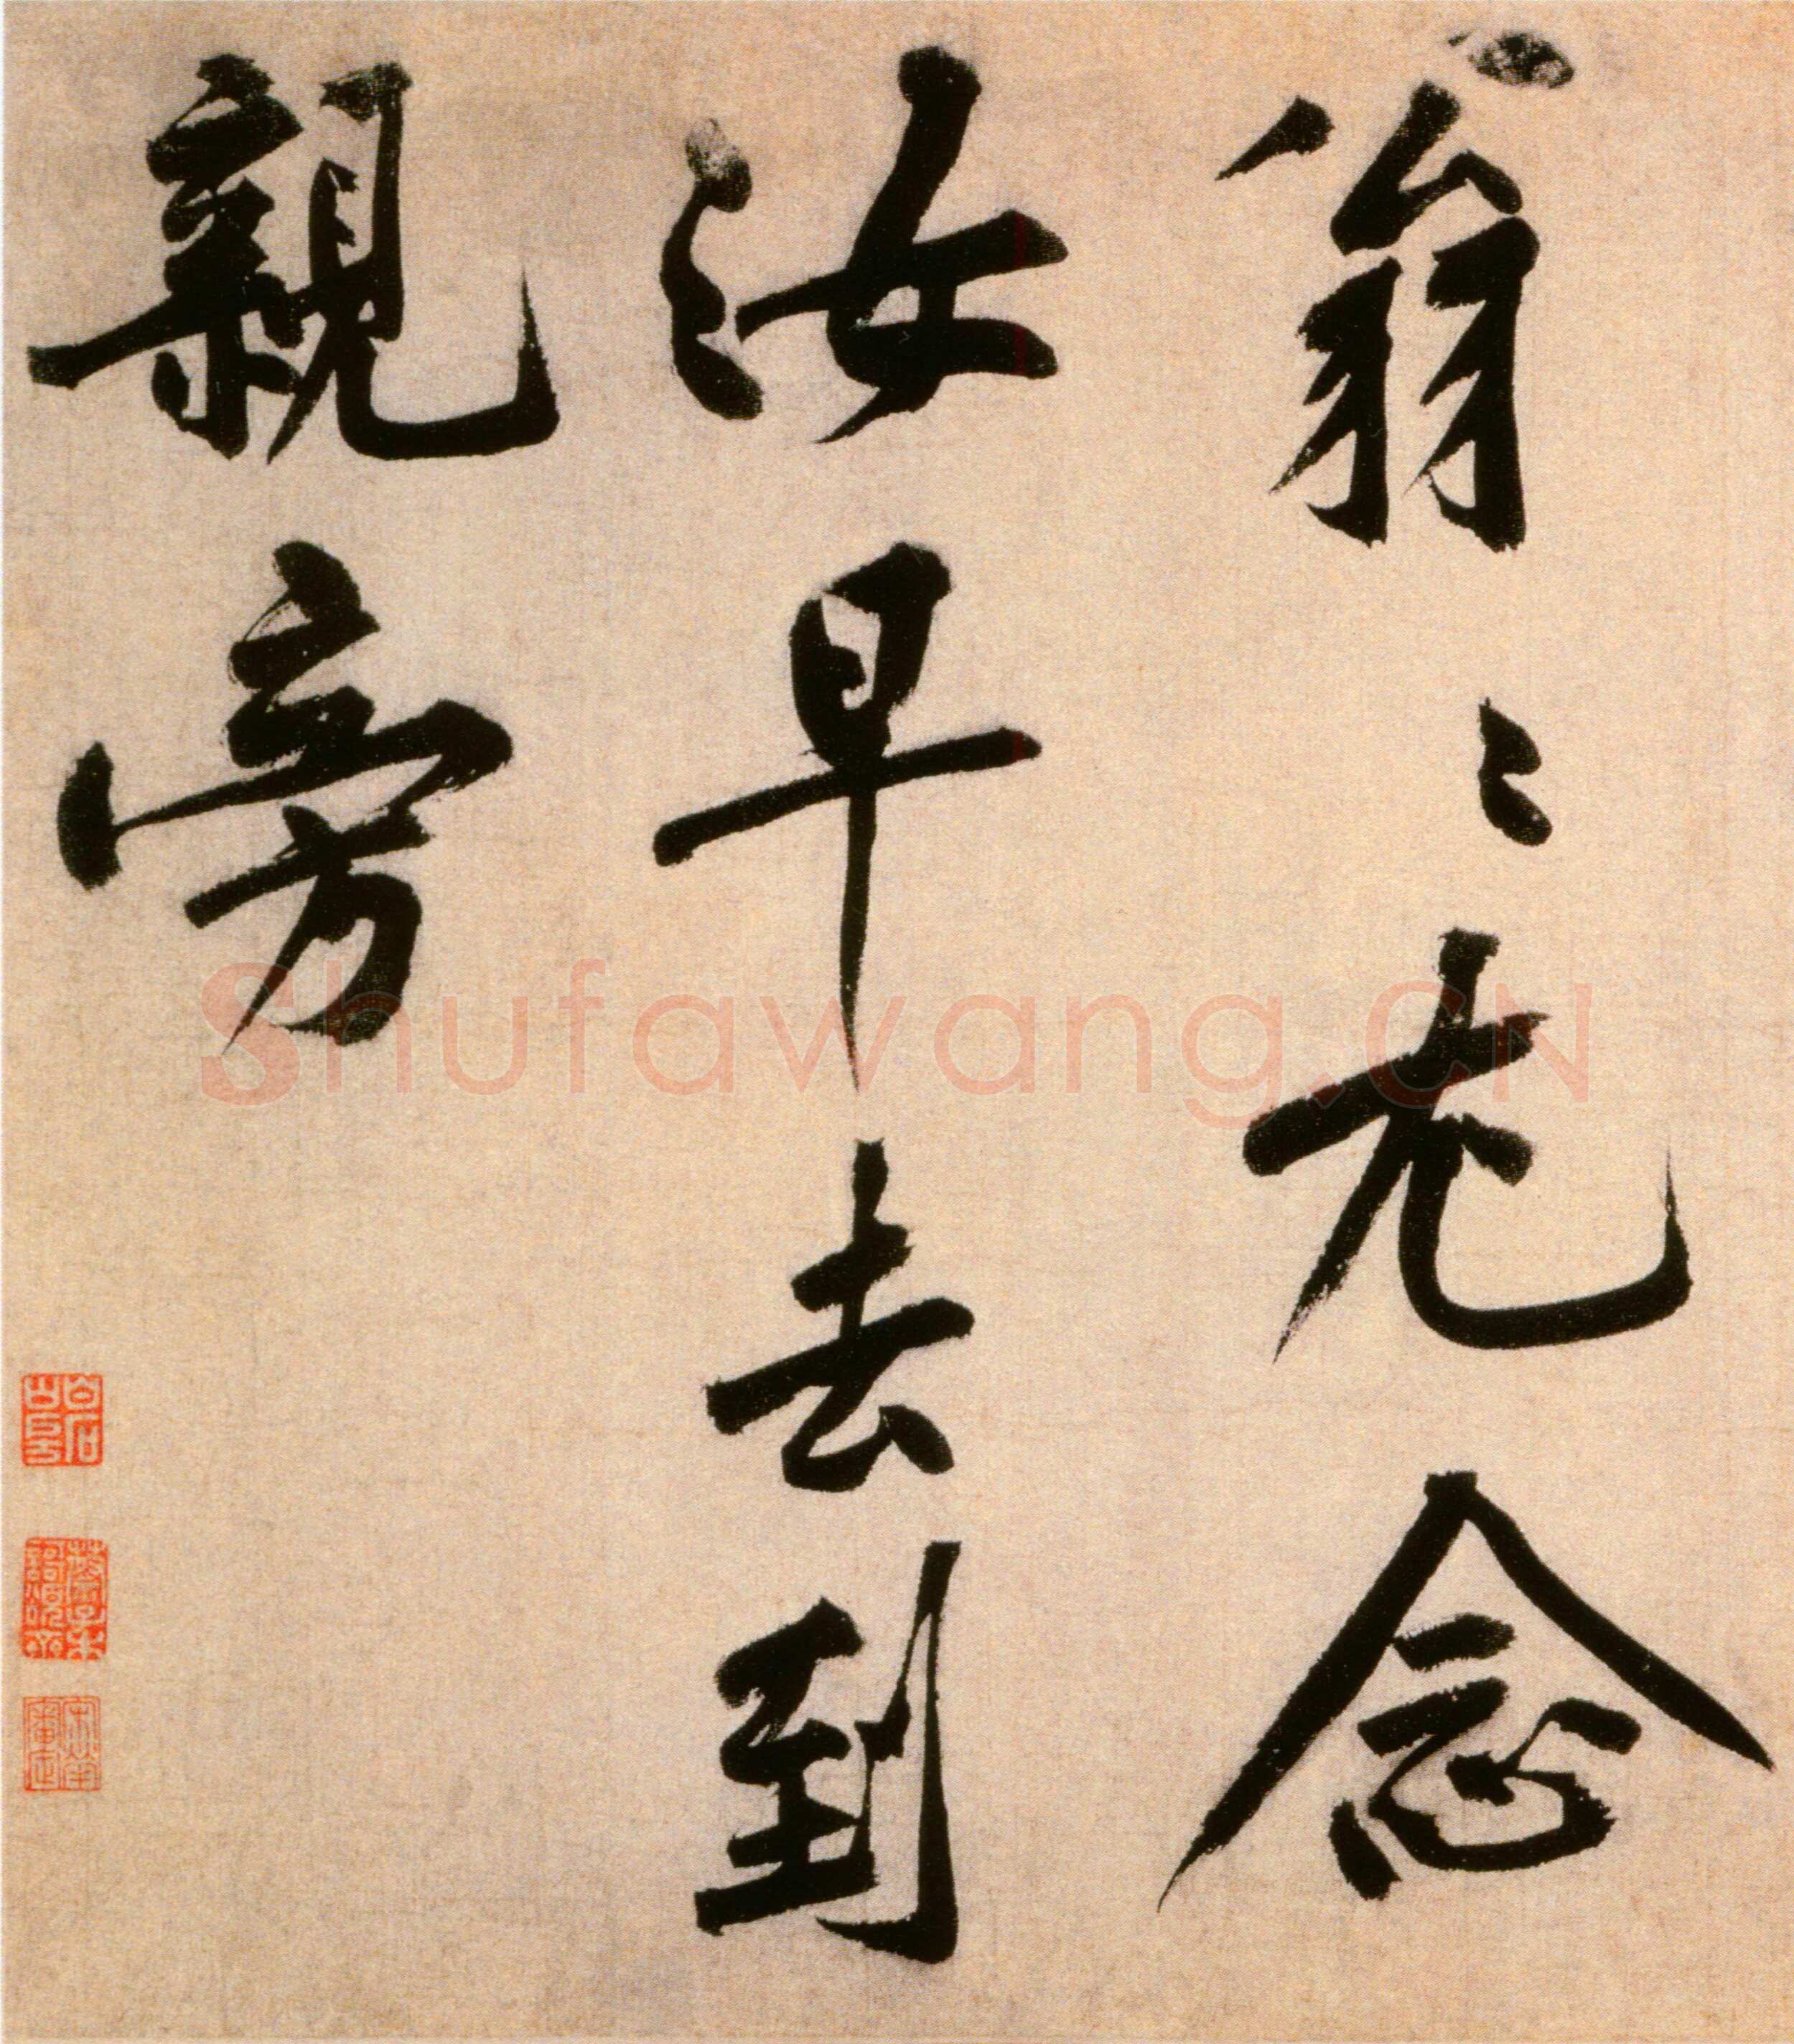 翁〻老念
汝早去到
親旁
Shufawang.CN